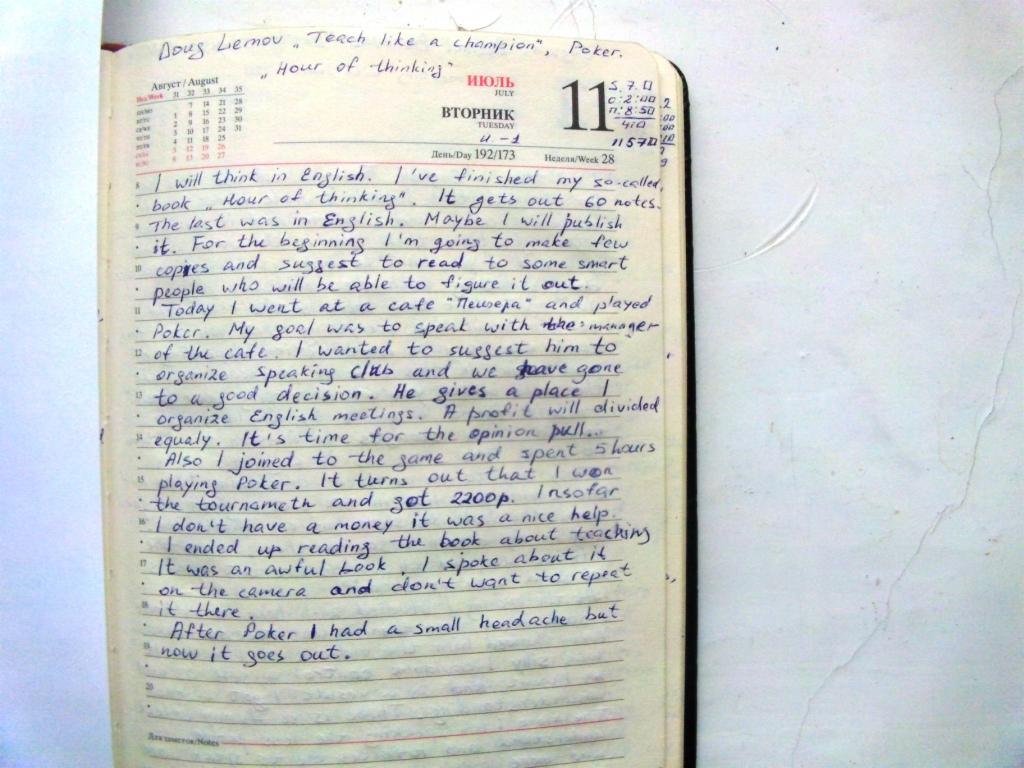 Doug Lemov „Teach like a champion", Poker.
„Hour of thinking"
Август / August
Нед/Week 31 32 33 34 35
7 14 21 28
1 8 15 22 29
2 9 16 23 30
3 10 17 24 31
4 11 18 25
5 12 19 26
6 13 20 27
ИЮЛЬ
JULY
11
ВТОРНИК
TUESDAY
и. -1
День/Day 192/173
Неделя/Week 28
8 I will think in English. I've finished my so-called,
book „Hour of thinking". It gets out 60 notes.
9 The last was in English. Maybe I will publish
it. For the beginning I'm going to make few
10 copies and suggest to read to some smart
people who will be able to figure it out.
11 Today I went at a cafe "Пещера" and played
Poker. My goal was to speak with the manager
12 of the cafe. I wanted to suggest him to
organize speaking club and we have gone
13 to a good decision. He gives a place I
organize English meetings. A profit will divided
14 equaly. It's time for the opinion pull...
Also I joined to the game and spent 5 hours
15 playing Poker. It turns out that I won
the tournameth and got 2200р. Insofar
16 I don't have a money it was a nice help.
I ended up reading the book about teaching
17 It was an awful book. I spoke about it
on the camera and don't want to repeat
18 it there.
After Poker I had a small headache but
19 now it goes out.
20
Для заметок/Notes